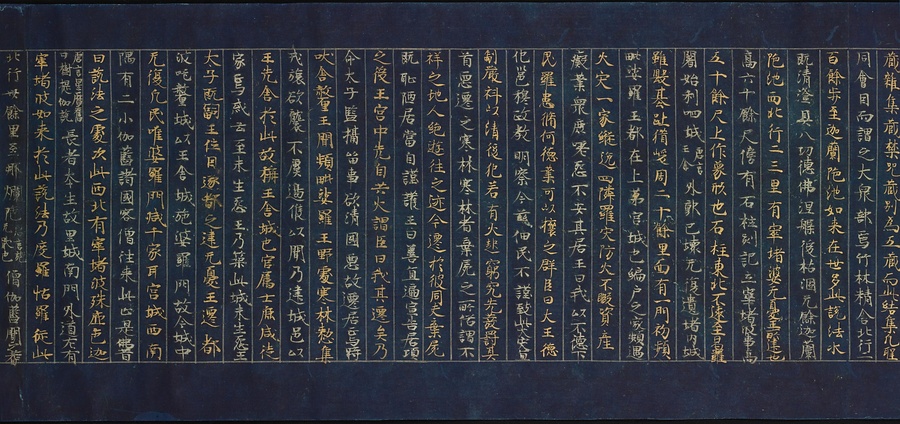 咒藏雜集藏禁咒藏別為五藏而此結集凡聖
同會因而謂之大眾部焉竹林精舍北行二
百餘步至迦蘭陀池如來在世多此說法水
既清澄具八功德佛涅槃後枯涸無餘迦蘭
陀池西北行二三里有窣堵婆無憂王所建也
高六十餘尺傍有石柱刻記立窣堵波事高
五十餘尺上作象形也石柱東北不遠至曷羅
闍姞利呬城唐言王舍外郭已壞無復遺堵內城
雖毀基趾猶峻周二十餘里面有一門初頻
毗娑羅王都在上茅宮城也編戶之家頻遇
火灾一家縱逸四隣羅灾防火不暇資產
廢業衆庶嗟怨不安其居王曰我以不德下
民羅患脩何德業可以禳之群臣曰大王德
化邕穆政教明察今茲細民不謹致此火灾宜
制嚴科以清後犯若有火起窮究先發罰其
首惡遷之寒林寒林者棄屍之所俗謂不
祥之地人絕遊往之迹令遷於彼同夫棄屍
既恥陋居當自謹護王曰善宜遍宣告居頃
之後王宮中先自失火謂臣曰我其遷矣乃
令太子監攝留事欲清國憲故遷居焉時
吠舍釐王聞頻毗娑羅王野處寒林整集
戎旅欲襲不虞邊候以聞乃建城邑以
王先舍於此故稱王舍城也官屬士庶咸徙
家焉或云至未生怨王乃築此城未生怨王
太子既嗣王位因遂都之逮無憂王遷都
波吒釐城以王舍城施婆羅門故今城中
無復凡民唯婆羅門減千家耳宮城西南
隅有二小伽藍諸國客僧往來此止是佛昔
日說法之處次此西北有窣堵波殊底色迦
唐言星曆舊曰樹提伽訛長者本生故里城南門外道左有
窣堵波如來於此說法及度羅怙羅從此
北行卅餘里至那爛陀唐言施無厭也僧伽藍聞之耆